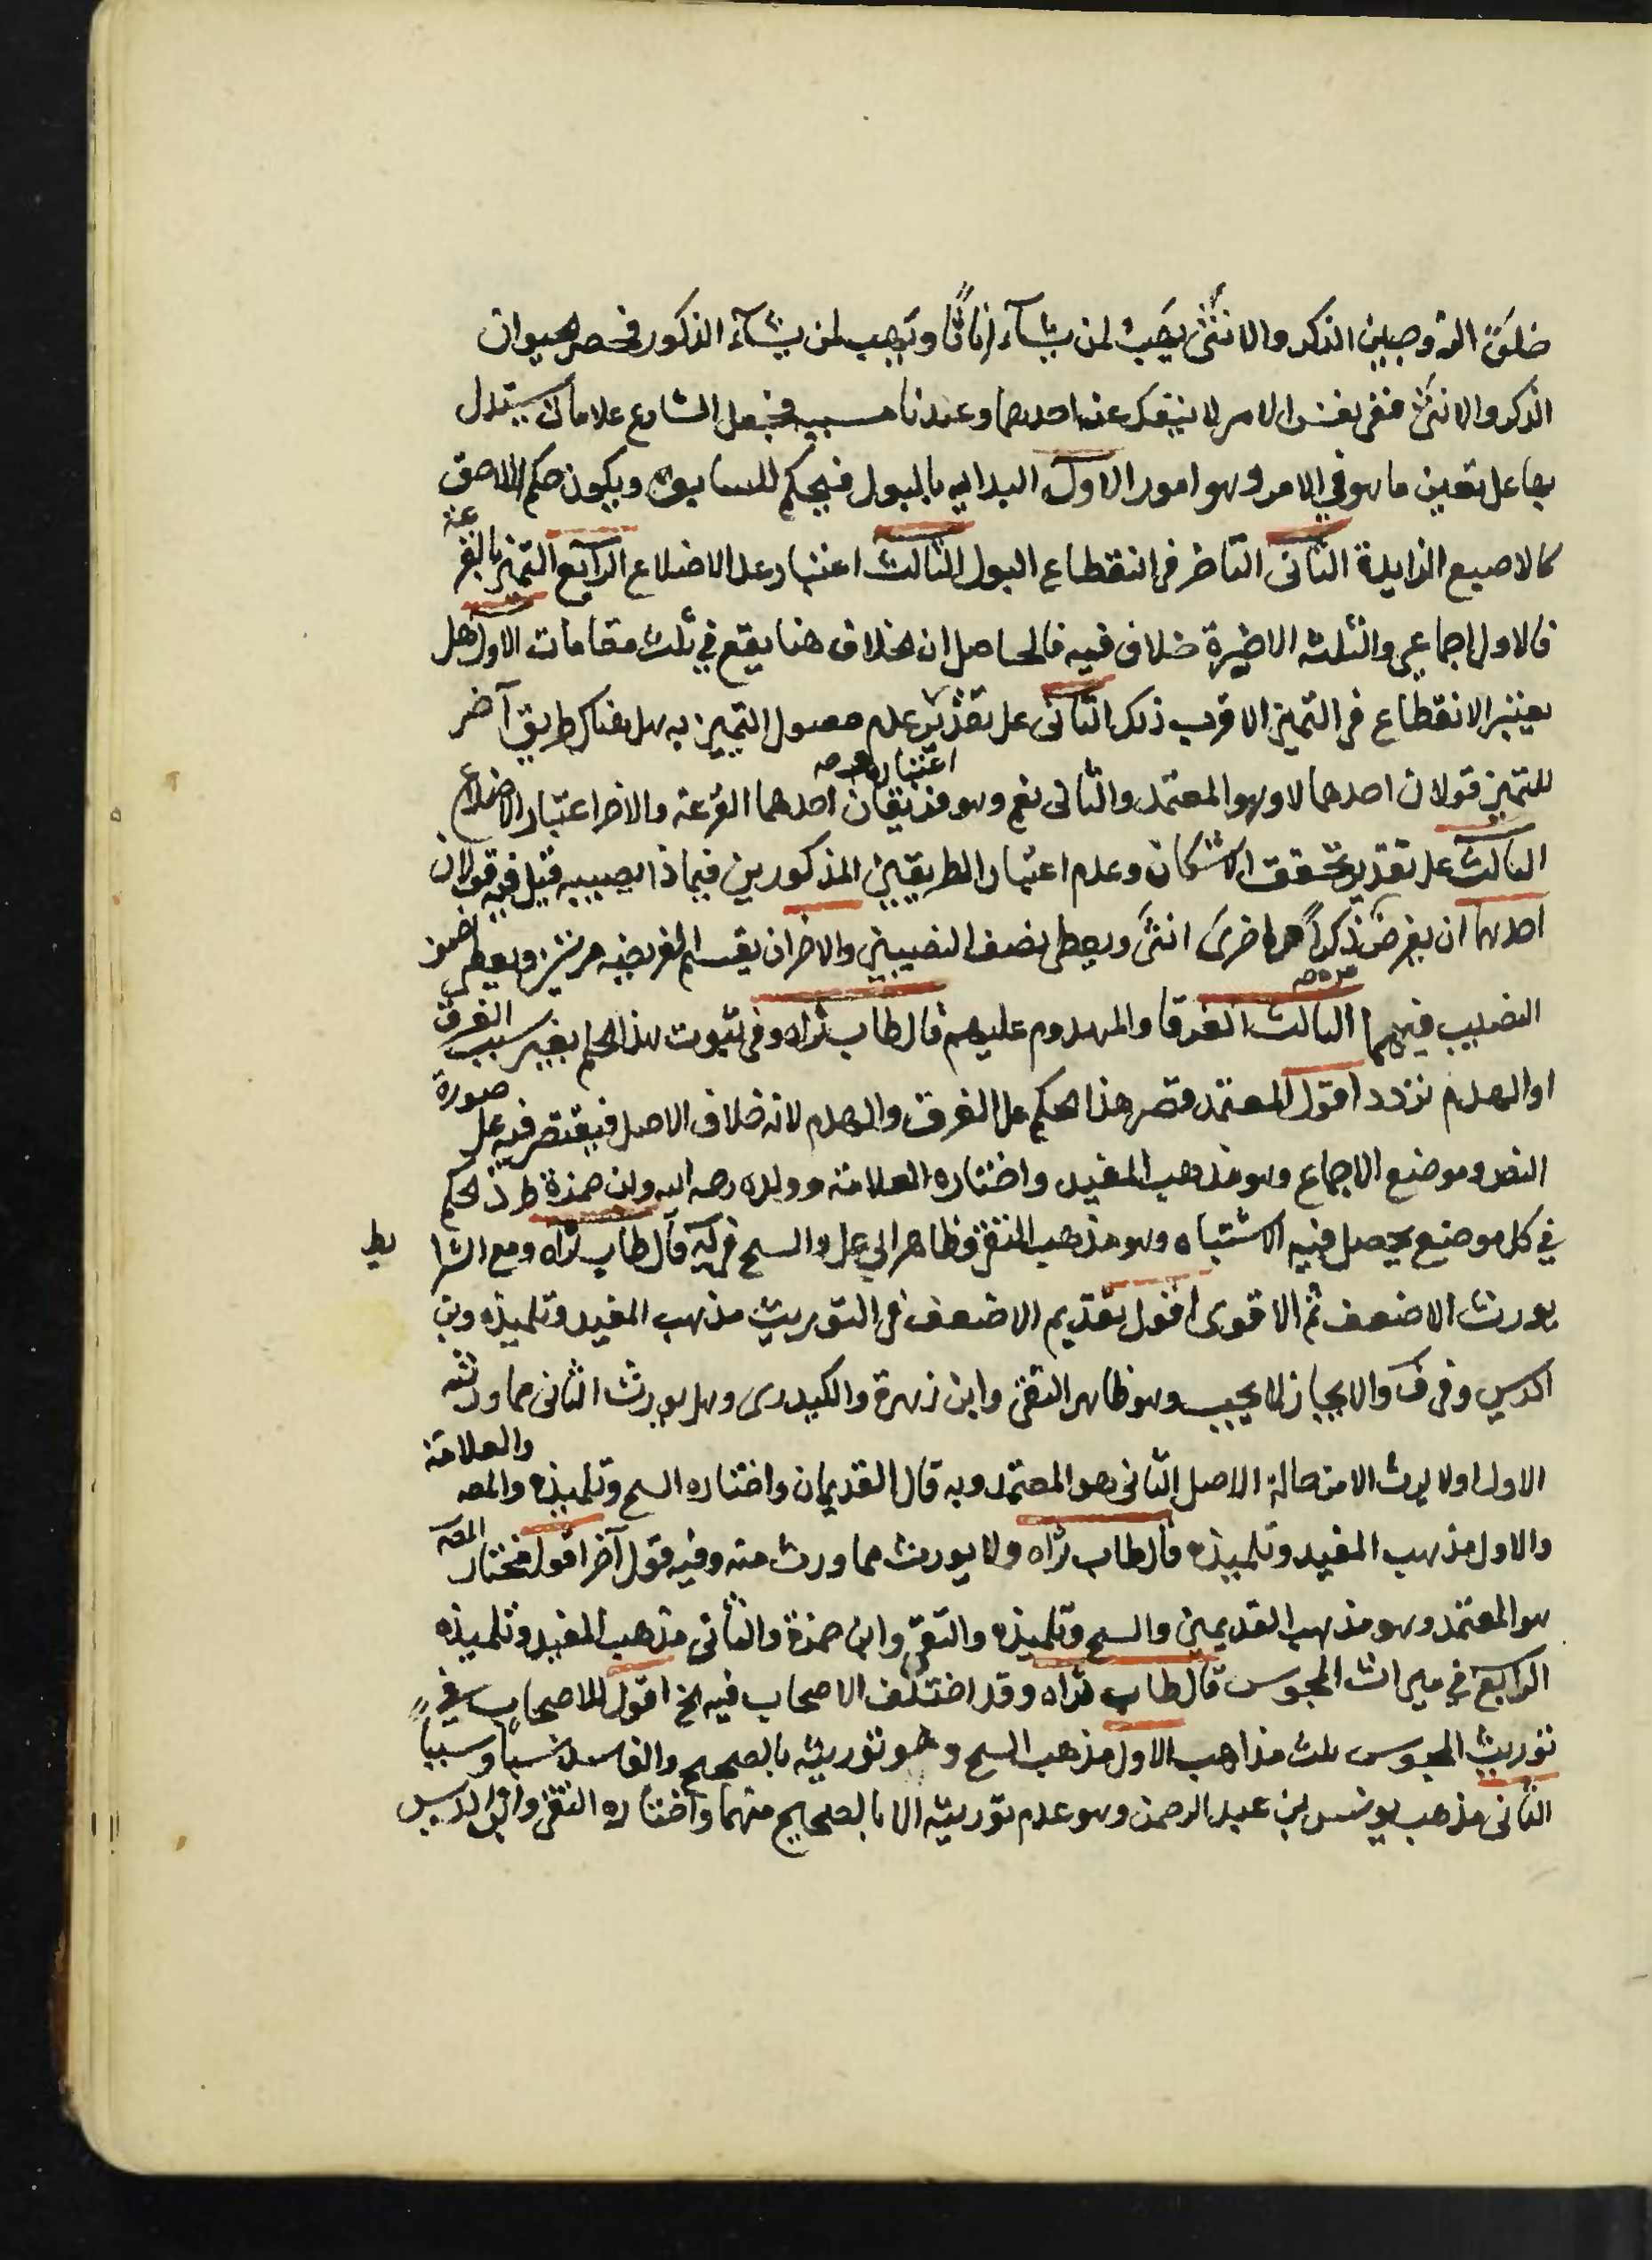 خلق الزوجين الذكر والانثى يهب لمن يشآء اناثًا ويهب لمن يشآء الذكور فحصر الحيوان
الذكر والانثى ففى نفس الامر لا ينفك عن احدهما وعندنا فجعل الشارع علامات يستدل
بها على تعين ما هو في الامر وهو امور الاول البدايه بالبول فيحكم للسابق ويكون حكم اللاحق
كالاصبع الزايدة الثانى التاخر فى انقطاع البول الثالث اعتبار عد الاضلاع الرابع التميز بالقرعة
فالاول اجماعي والثلثه الاخيرة خلاف فيه فالحاصل ان الخلاف هنا يقع في ثلث مقامات الاول هل
يعتبر الانقطاع فى التميز الاقرب ذلك الثانى على تقدير عدم حصول التميز به هل هناك طريق آخر
للتميز قولان احدهما لا وهو المعتمد والثانى نعم وهو فريقان احدهما اعتباره القرعة والاخر اعتبار الاضلاع
الثالث على تقدير تحقق الاشكال وعدم اعتبار الطريقين المذكورين فيما ذا نصيبه قيل فيه قولان
احدهما ان يفرض ذكرًا مرة واخرى انثى ويعطى نصف النصيبين والاخر ان يقسم الفريضه مرتين ويعطى نصف
النصيب فيهما الثالث الغرقا والمهدوم عليهم قال طاب ثراه وفى ثبوت هذا الحكم بغير سبب الغرق
او الهدم تردد اقول المعتمد قصر هذا الحكم على الغرق والهدم لانه خلاف الاصل فيقتصر فيه على صورة
النص وموضع الاجماع وهو مذهب المفيد واختاره العلامة وولده رحمه الله وابن حمزة طرد الحكم
في كل موضع يحصل فيه الاشتباه وهو مذهب التقى وظاهر ابي على والشيخ فى يه قال طاب ثراه ومع الشرايط
يورث الاضعف ثم الاقوى اقول تقديم الاضعف فى التوريث مذهب المفيد وتلميذه وابن
ادريس وفى ف والايجاز لا يجب وهو ظاهر التقى وابن زهرة والكيدرى وهل يورث الثانى مما ورثه
الاول اولا يرث الا من حالة الاصل الثانى هو المعتمد وبه قال القديمان واختاره الشيخ وتلميذه والمصه والعلامة
والاول مذهب المفيد وتلميذه قال طاب ثراه ولا يورث مما ورث منه وفيه قول آخر اقول مختار المصه
هو المعتمد وهو مذهب القديمين والشيخ وتلميذه والتقى وابن حمزة والثانى مذهب المفيد وتلميذه
الرابع في ميراث المجوس قال طاب ثراه وقد اختلف الاصحاب فيه الخ اقول للاصحاب في
توريث المجوس ثلث مذاهب الاول مذهب الشيخ وهو توريثه بالصحيح والفاسد نسبًا وسببًا
الثانى مذهب يونس بن عبد الرحمن وهو عدم توريثه الا بالصحيح منهما واختاره التقى وابن ادريس